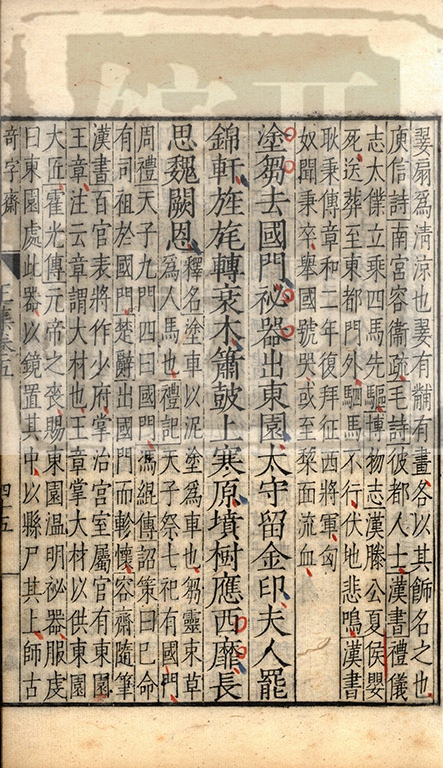 翣扇爲清涼也翣有黼有畫各以其飾名之也
庾信詩南宮容衞疏毛詩彼都人士漢書禮儀
志太僕立乘四馬先驅博物志漢滕公夏侯嬰
死送葬至東都門外駟馬不行伏地悲鳴漢書
耿秉傳章和二年復拜征西將軍匈
奴聞秉卒舉國號哭或至棃面流血
塗芻去國門祕器出東園太守留金印夫人罷
錦軒旌旄轉衰木簫鼓上寒原墳樹應西靡長
思魏闕恩釋名塗車以泥塗爲車也芻靈束草
爲人馬也禮記天子祭七祀有國門
周禮天子九門四曰國門馮緄傳詔策曰已命
有司祖於國門楚辭出國門而軫懷容齋隨筆
漢書百官表將作少府掌治宮室屬官有東園
王章注云章謂大材也王章掌大材以供東園
大匠霍光傳元帝之喪賜東園温明祕器服虔
曰東園處此器以鏡置其中以縣尸其上師古
奇字齋
五
四十五